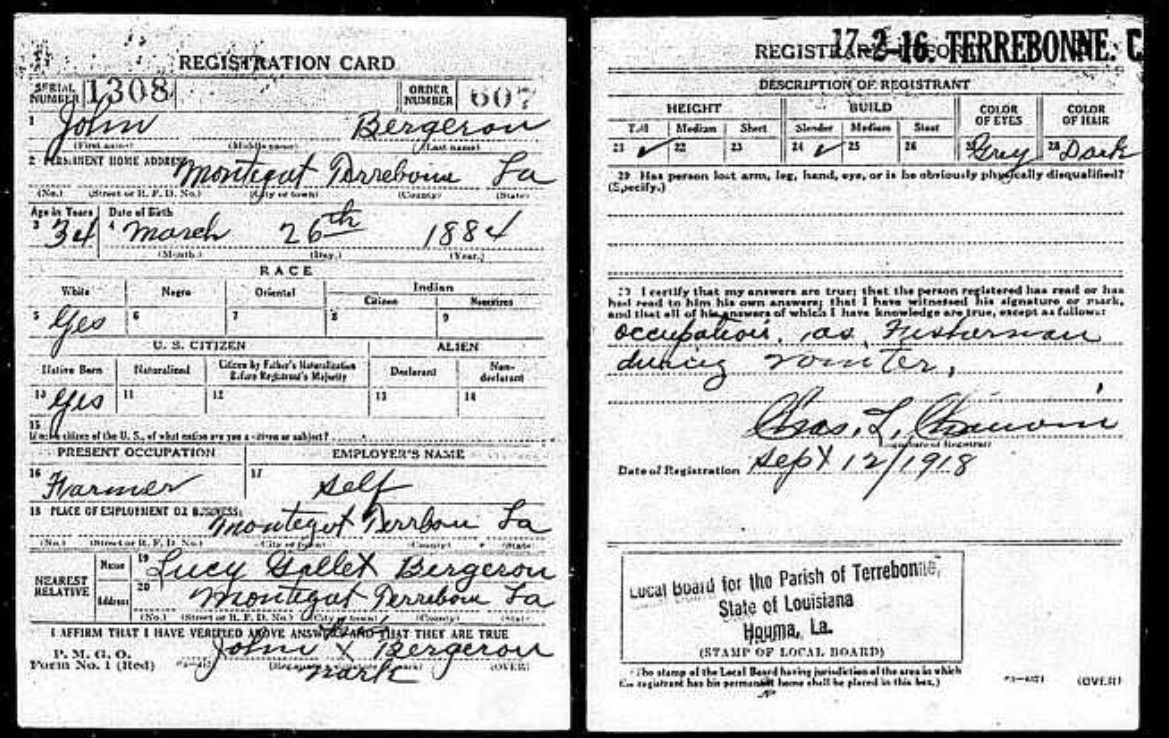 REGISTRATION CARD
SERIAL NUMBER 1308 ORDER NUMBER 607
1 John Bergeron
(First name) (Middle name) (Last name)
2 PERMANENT HOME ADDRESS Montegut Terrebonne La
(No.) (Street or R. F. D. No.) (City or town) (County) (State)
Age in Years Date of Birth
3 34 4 March 26th 1884
(Month.) (Day.) (Year.)
RACE
White Negro Oriental Indian
Citizen Noncitizen
5 Yes 6 7 8 9
U. S. CITIZEN ALIEN
Native Born Naturalized Citizen by Father's Naturalization Before Registrant's Majority Declarant Non-declarant
10 Yes 11 12 13 14
15
If not a citizen of the U. S., of what nation are you a citizen or subject?
PRESENT OCCUPATION EMPLOYER'S NAME
16 Farmer 17 Self
18 PLACE OF EMPLOYMENT OR BUSINESS: Montegut Terrbone La
(No.) (Street or R. F. D. No.) (City or town) (County) (State)
NEAREST RELATIVE Name 19 Lucy Gallet Bergeron
Address 20 Montegut Terrebone La
(No.) (Street or R. F. D. No.) (City or town) (County) (State)
I AFFIRM THAT I HAVE VERIFIED ABOVE ANSWERS AND THAT THEY ARE TRUE
P. M. G. O.
Form No. 1 (Red) John X Bergeron (OVER)
mark
REGISTRAR'S REPORT 17-2-16. TERREBONNE. C
DESCRIPTION OF REGISTRANT
HEIGHT BUILD COLOR OF EYES COLOR OF HAIR
Tall Medium Short Slender Medium Stout
21 ✓ 22 23 24 ✓ 25 26 27 Grey 28 Dark
29 Has person lost arm, leg, hand, eye, or is he obviously physically disqualified?
(Specify.)
30 I certify that my answers are true; that the person registered has read or has
had read to him his own answers; that I have witnessed his signature or mark,
and that all of his answers of which I have knowledge are true, except as follows:
occupation, as Fisherman
during winter,
Chas. L.
(Signature of Registrar)
Date of Registration Sept 12/1918
Local Board for the Parish of Terrebonne,
State of Louisiana
Houma, La.
(STAMP OF LOCAL BOARD)
(The stamp of the Local Board having jurisdiction of the area in which
the registrant has his permanent home shall be placed in this box.)
(OVER)